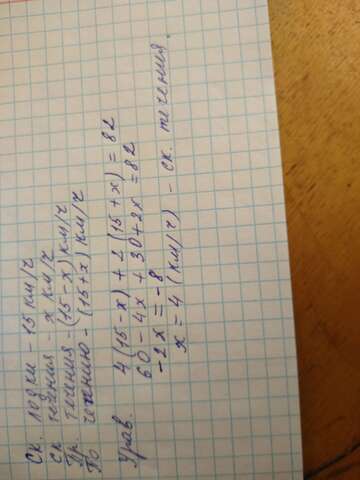 Ск. лодки - 15 км/ч
ск течения - х км/ч
Пр. течения - (15-х) км/ч
По течению - (15+х) км/ч
Урав.
4(15-х) + 2(15+х) = 82
60 - 4х + 30 + 2х = 82
-2х = -8
х = 4 (км/ч) - ск. течения.